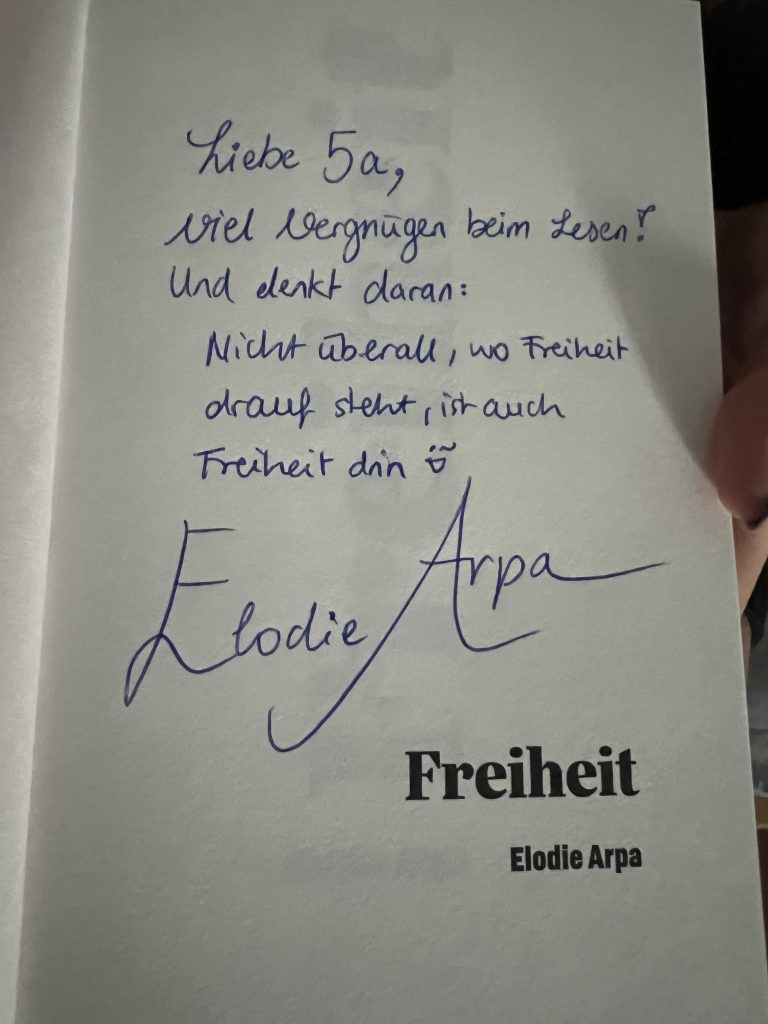 Liebe 5a,
viel Vergnügen beim Lesen!
Und denkt daran:
Nicht überall, wo Freiheit
drauf steht, ist auch
Freiheit drin
Elodie Arpa
Freiheit
Elodie Arpa